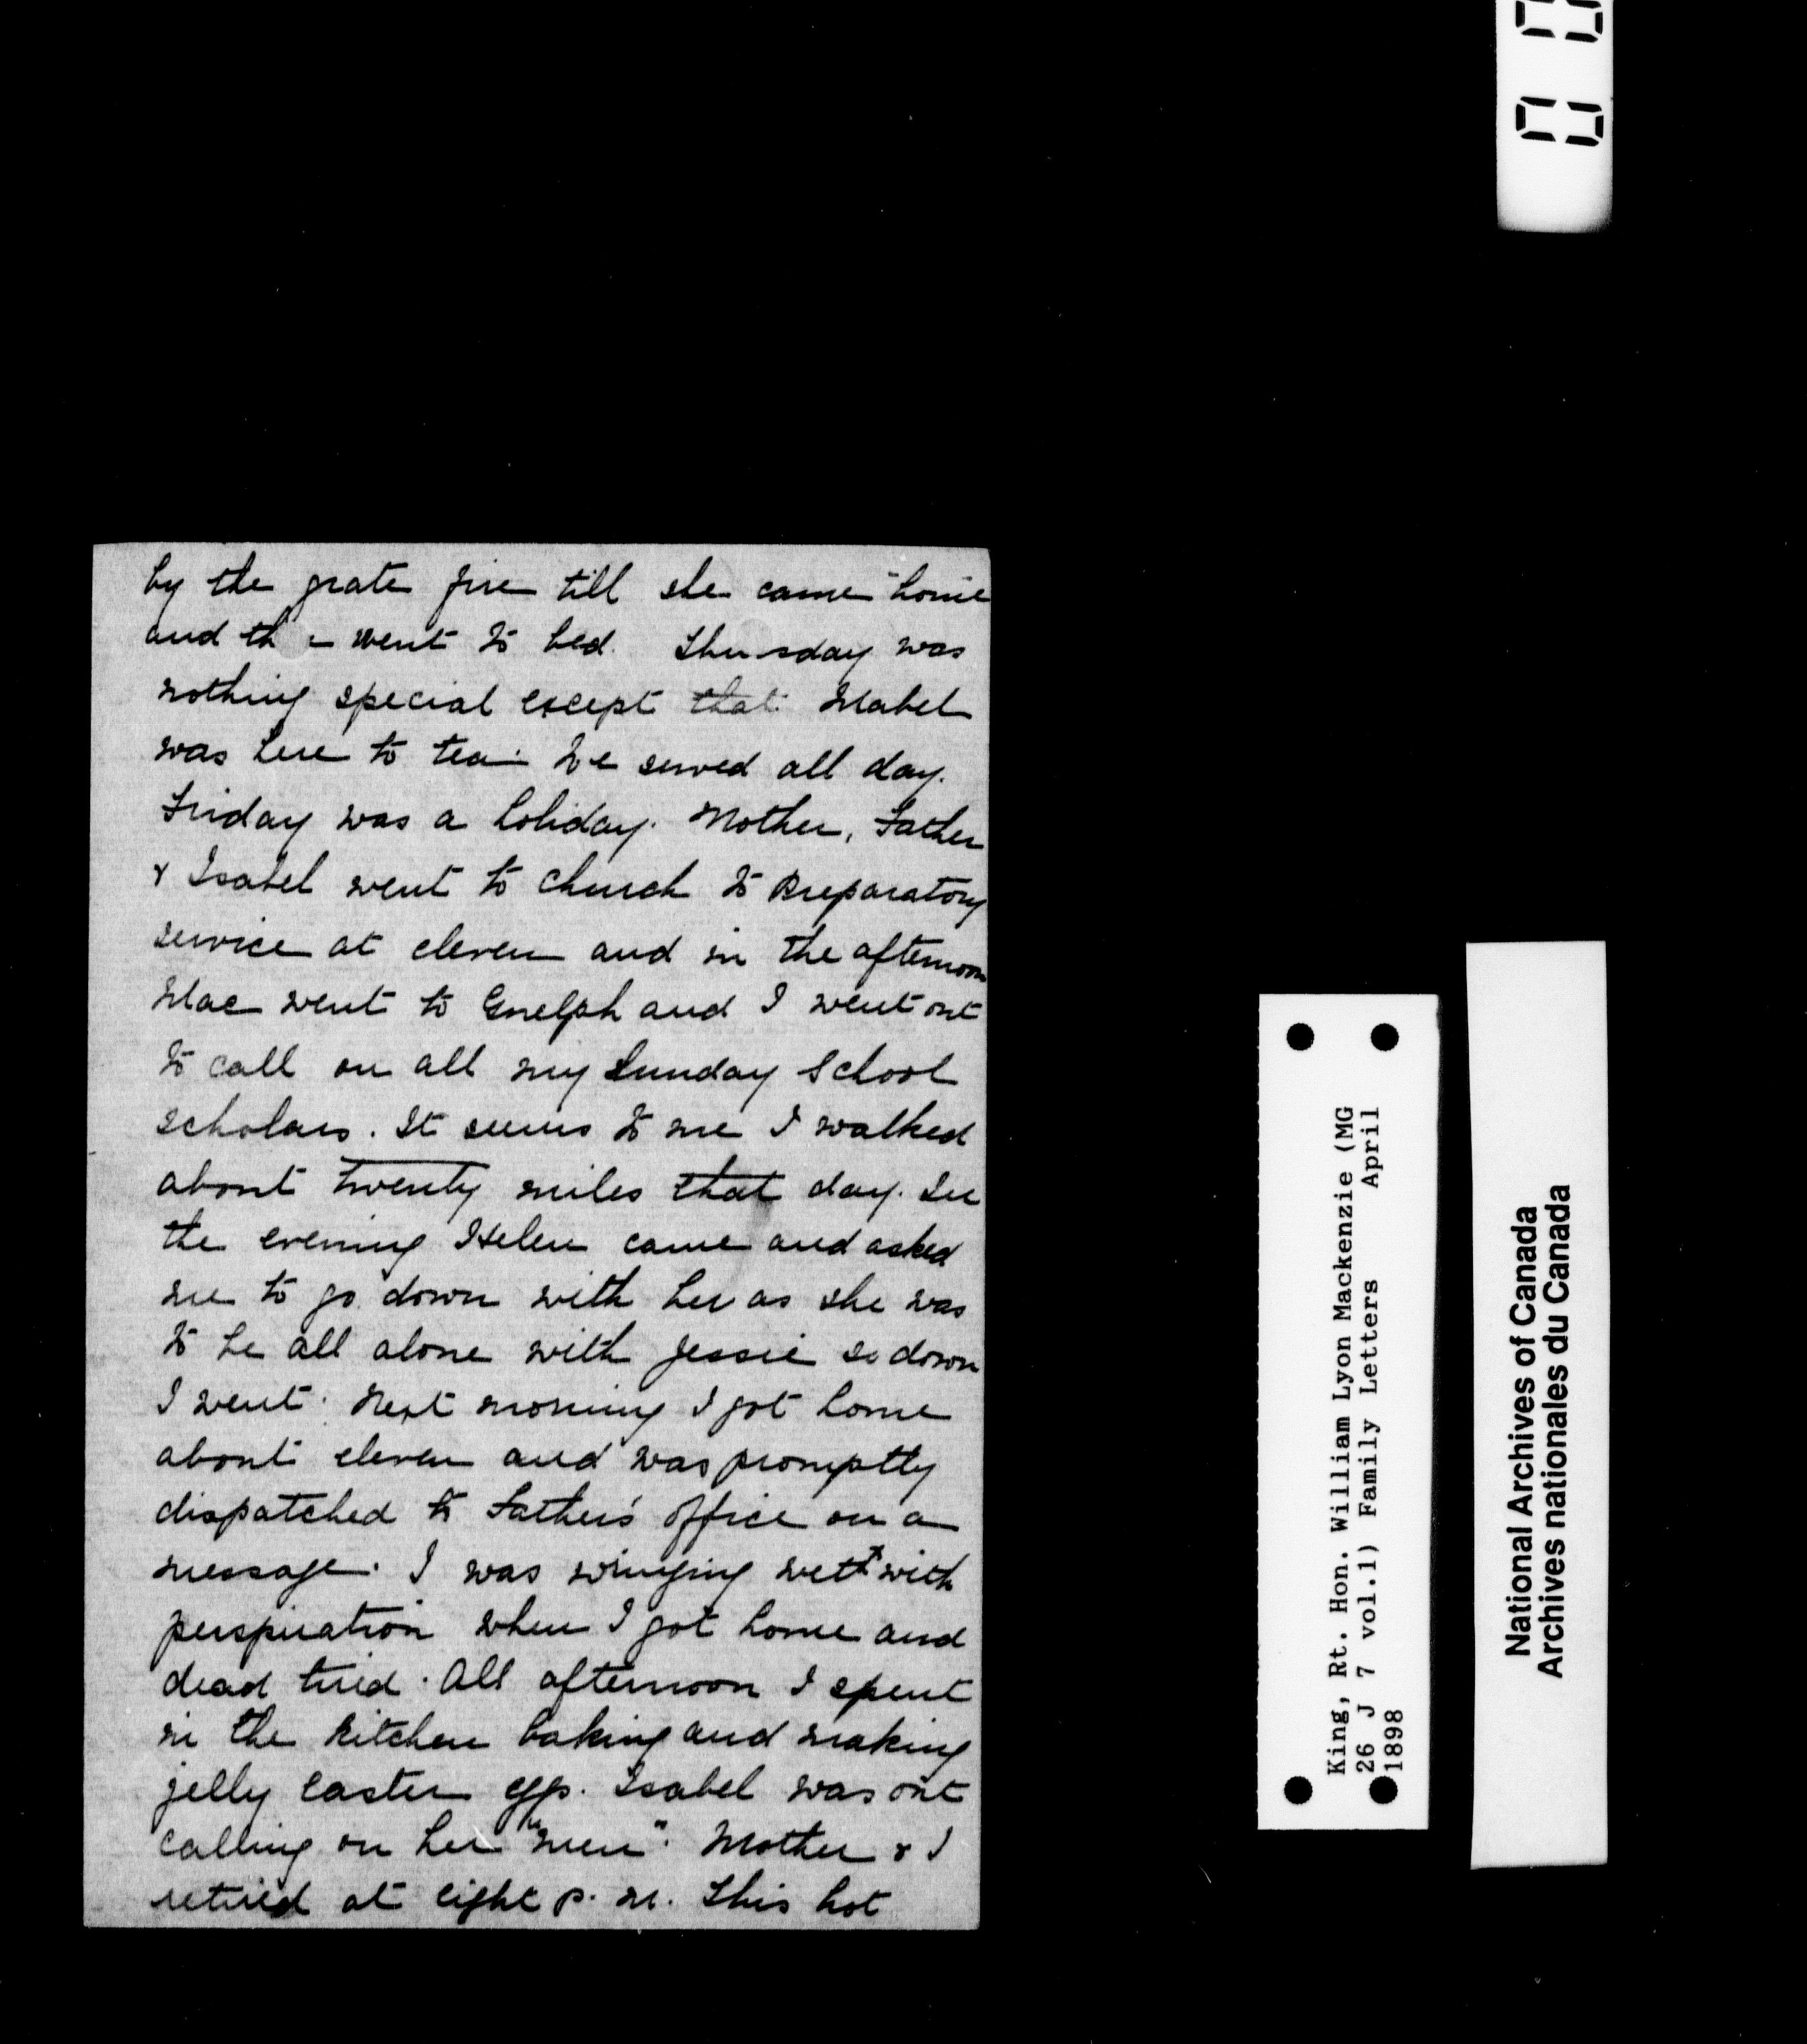 by the grate fire till she came home
and th n went to bed. Thursday was
nothing special except that Mabel
was here to tea. We sewed all day.
Friday was a holiday. Mother, Father
& Isabel went to church to Preparatory
service at eleven and in the afternoon
Mac went to Guelph and I went out
to call on all my Sunday School
scholars. It seems to me I walked
about twenty miles that day. In
the evening Helen came and asked
me to go down with her as she was
to be all alone with Jessie so down
I went. Next morning I got home
about eleven and was promptly
dispatched to Father's office on a
message. I was wringing wet with
perspiration when I got home and
dead tired. All afternoon I spent
in the kitchen baking and making
jelly easter eggs. Isabel was out
calling on her "men". Mother & I
retired at eight p.m. This hot
King, Rt. Hon. William Lyon Mackenzie (MG
26 J 7 vol.1) Family Letters April
1898
National Archives of Canada
Archives nationales du Canada